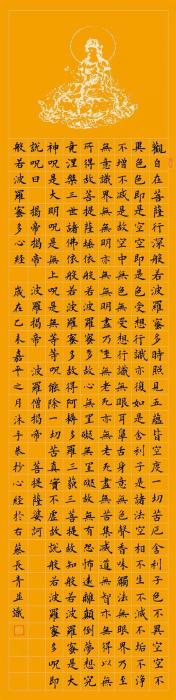 觀自在菩薩行深般若波羅蜜多時照見五蘊皆空度一切苦厄舍利子色不異空空不
異色色即是空空即是色受想行識亦復如是舍利子是諸法空相不生不滅不垢不淨
不增不減是故空中無色無受想行識無眼耳鼻舌身意無色聲香味觸法無眼界乃至
無意識界無無明亦無無明盡乃至無老死亦無老死盡無苦集滅道無智亦無得以無
所得故菩提薩埵依般若波羅蜜多故心無罣礙無罣礙故無有恐怖遠離顛倒夢想究
竟涅槃三世諸佛依般若波羅蜜多故得阿耨多羅三藐三菩提故知般若波羅蜜多是大
神呪是大明呪是無上呪是無等等呪能除一切苦真實不虛故說般若波羅蜜多呪即
說呪曰 揭帝揭帝 波羅揭帝 波羅僧揭帝 菩提薩婆訶
般若波羅蜜多心經 歲在乙未嘉平之月沐手恭抄心經於右 蔡長青並識